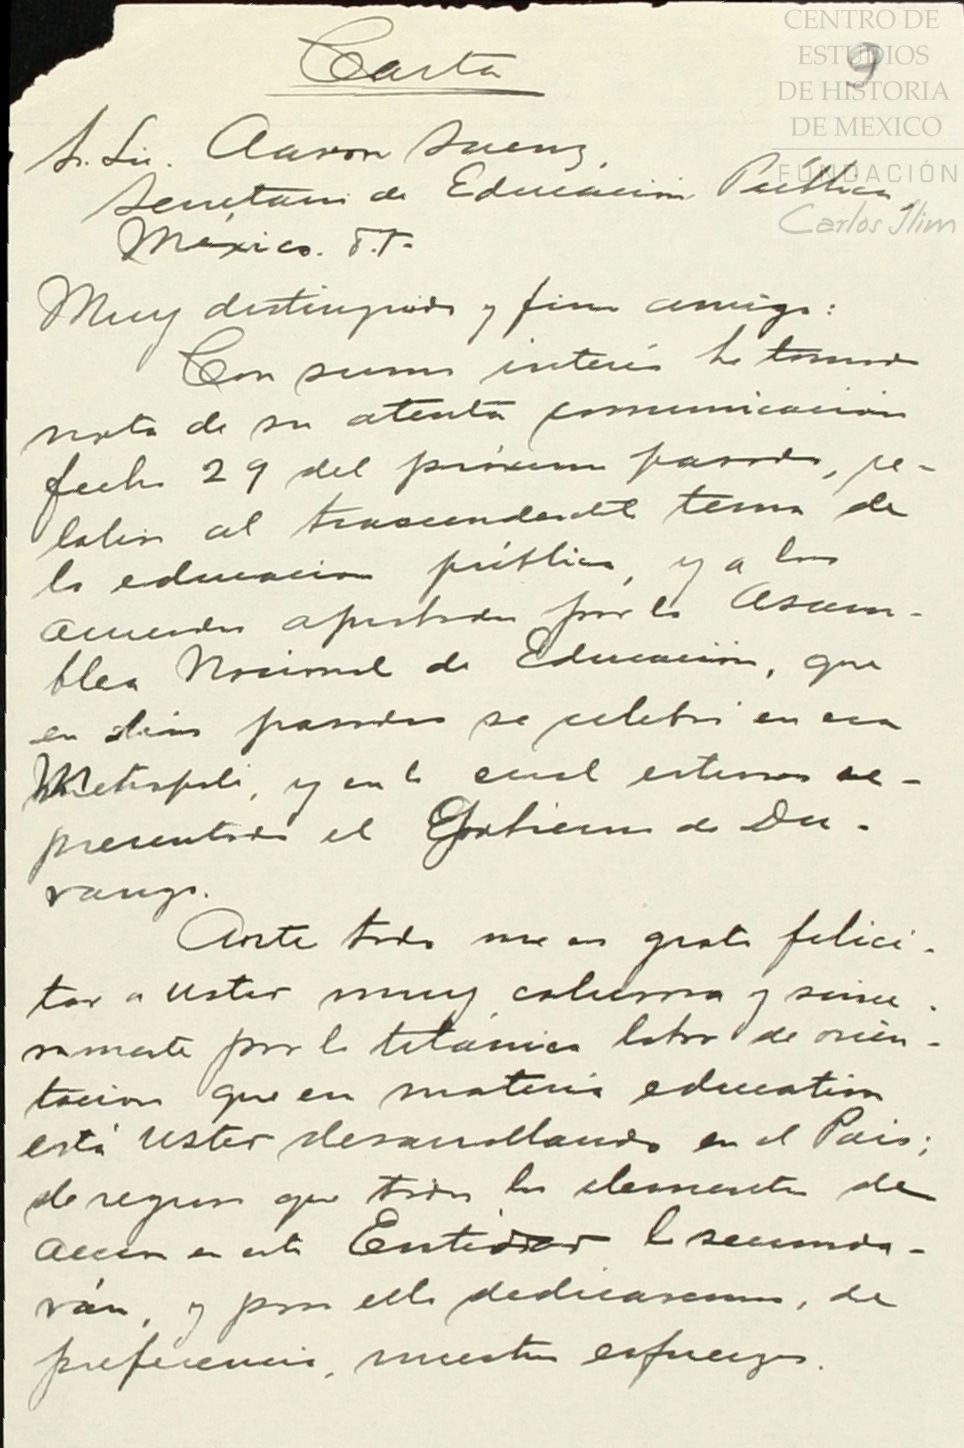 CENTRO DE
ESTUDIOS
DE HISTORIA
DE MEXICO
FUNDACIÓN
Carlos Slim
9
Carta
Sr. Lic. Aaron Saenz,
Secretario de Educación Pública
México. D.F.
Muy distinguido y fino amigo:
Con sumo interés he tomado
nota de su atenta comunicación
fecha 29 del próximo pasado, re-
lativa al trascendental tema de
la educacion pública, y a los
acuerdos aprobados por la Asam-
blea Nacional de Educación, que
en dias pasados se celebró en esa
Metrópoli, y en la cual estuvo re-
presentado el Gobierno de Du-
rango.
Ante todo me es grato felici-
tar a usted muy calurosa y since-
ramente por la titánica labor de orien-
tacion que en materia educativa
está usted desarrollando en el Pais;
de seguro que todos los elementos de
accion en esta Entidad la secunda-
rán, y para ello dedicaremos, de
preferencia, nuestros esfuerzos.